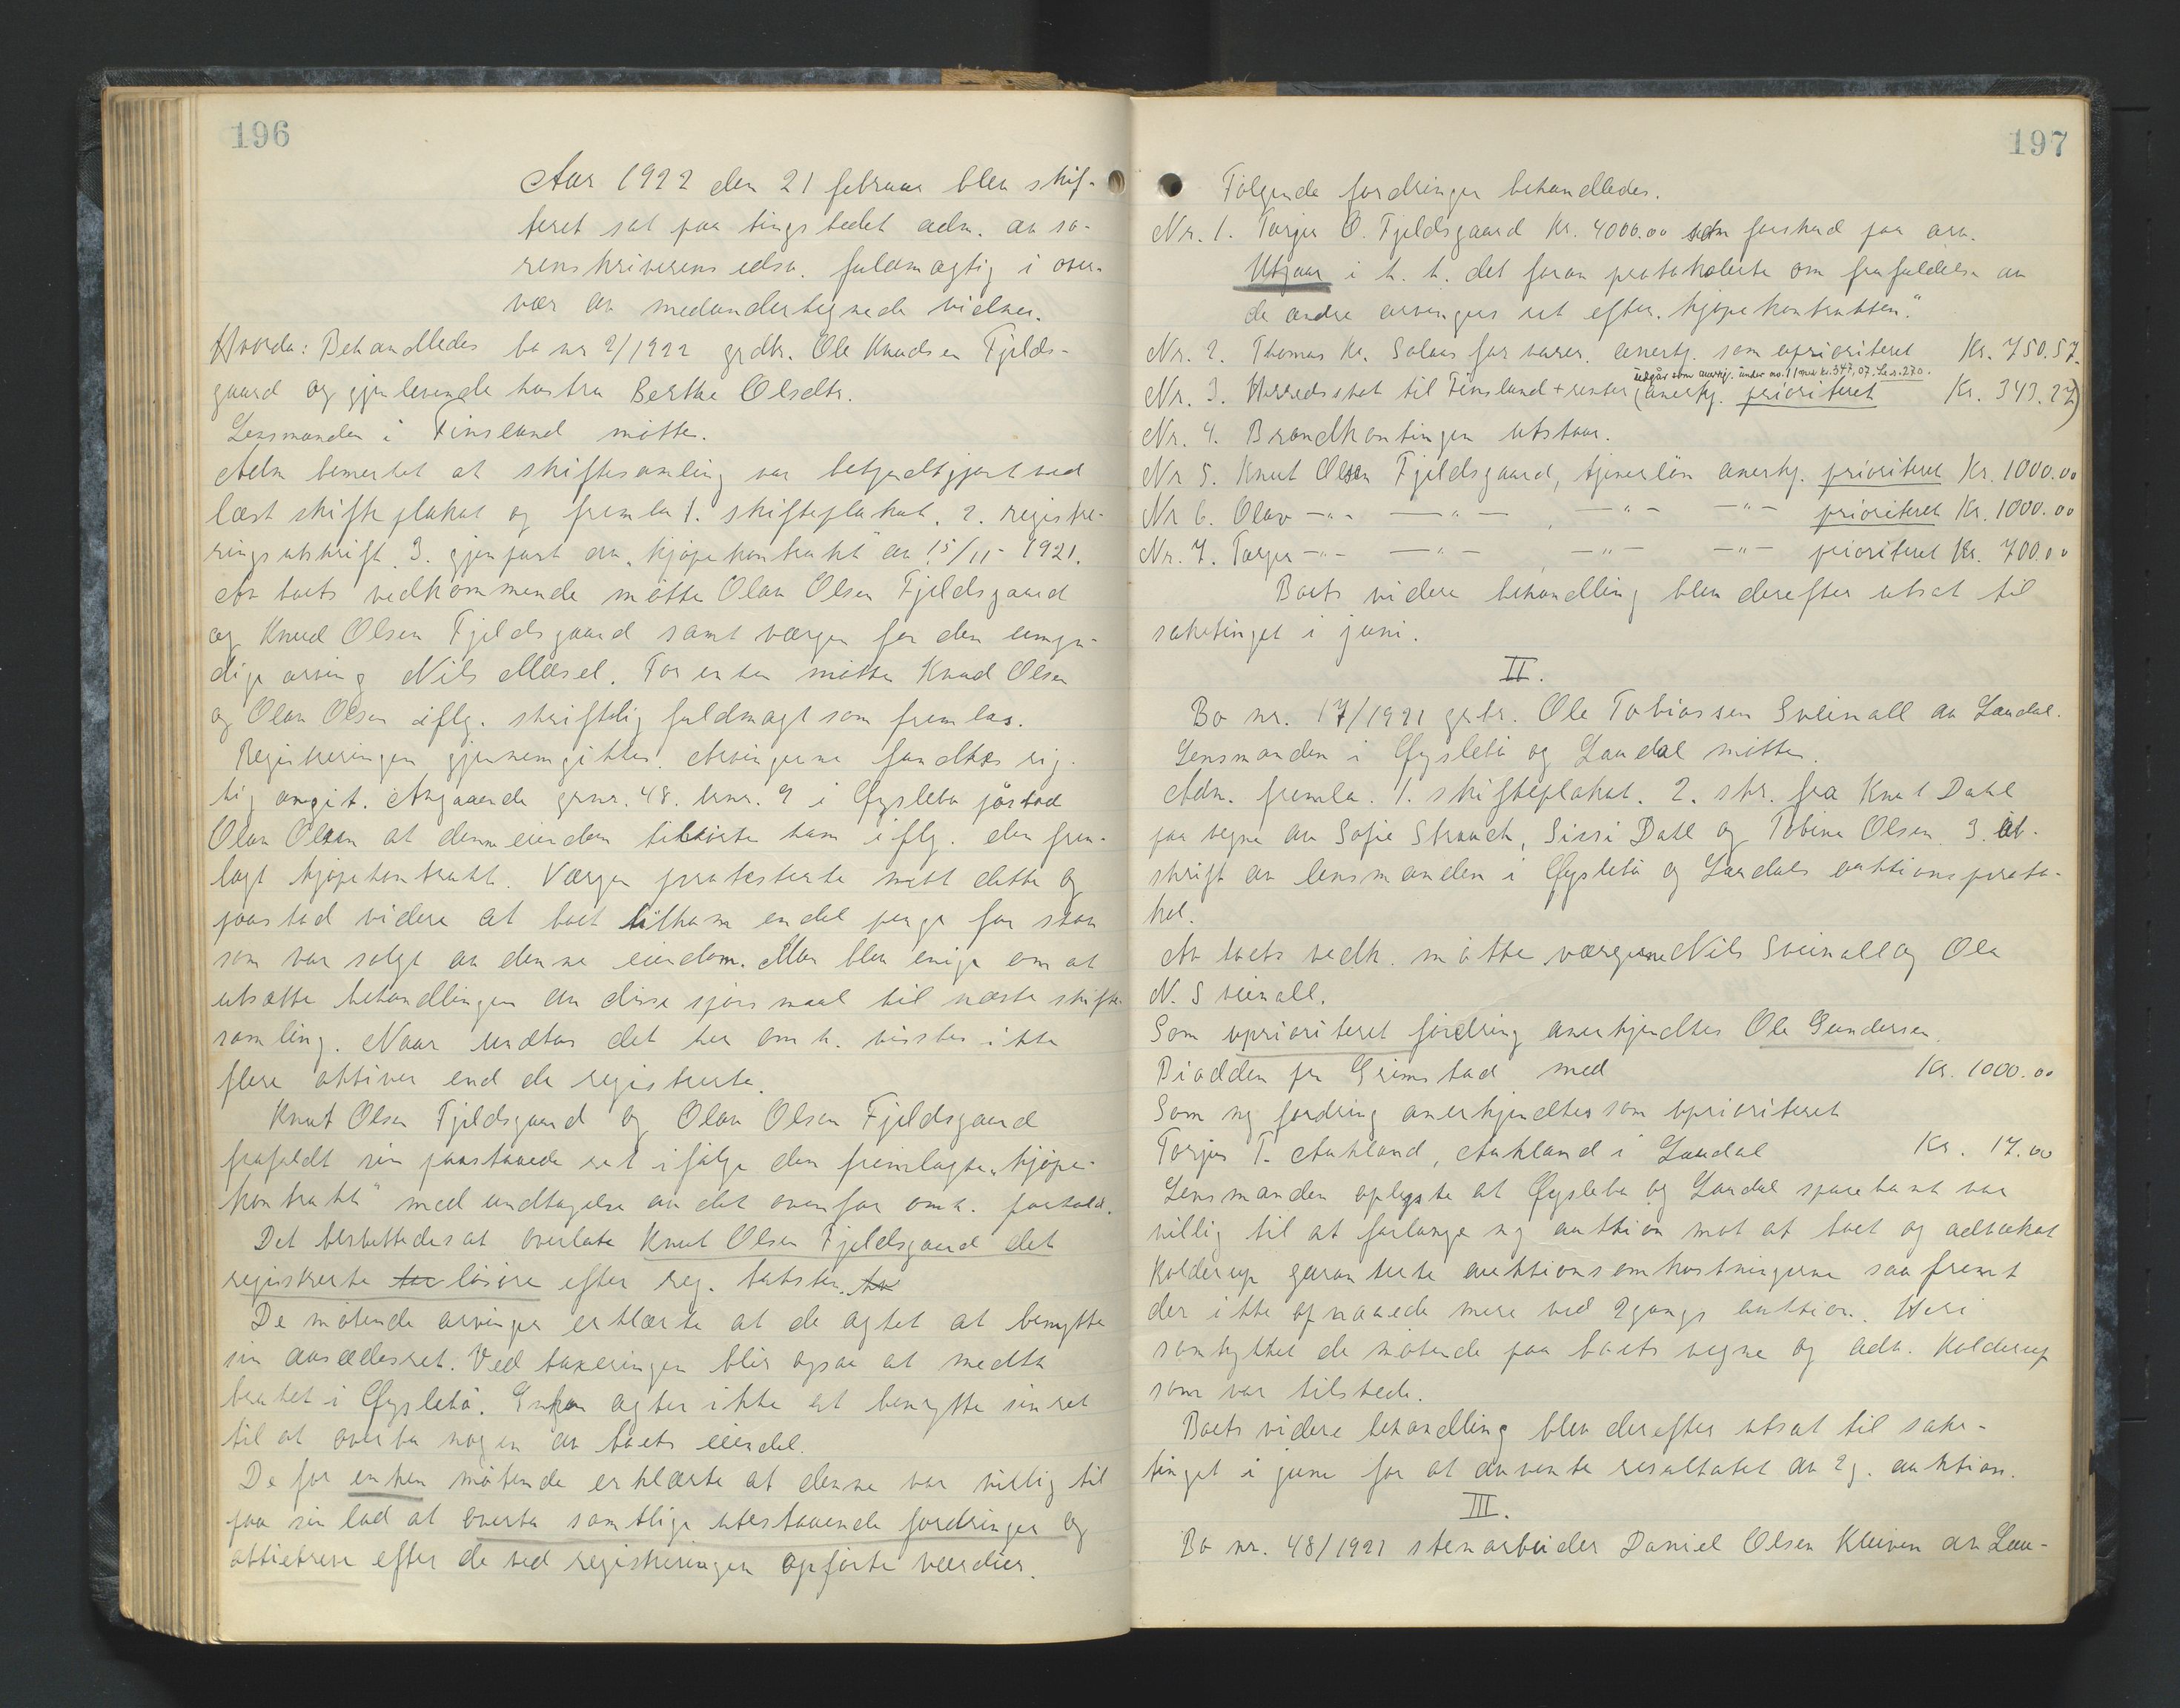 196
Aar 1922 den 21 februar blev skif-
teret sat paa tingstedet adm. av so-
renskriverens edsv. fuldmægtig i over-
vær av medundertegnede vidner.
Hvorda: Behandledes bo nr 2/1922 grdbr. Ole Knudsen Fjelds-
gaard og gjenlevende hustru Berthe Olsdtr.
Lensmanden i Finsland møtte.
Adm bemerket at skiftesamling var bekjendtgjort ved
læst skifteplakat og fremla 1. skifteplakat. 2. registre-
ringsutskrift 3. gjenpart av "kjøpekontrakt" av 15/11-1921.
Av boets vedkommende møtte Olav Olsen Fjeldsgaard
og Knud Olsen Fjeldsgaard samt værgen for den umyn-
dige arving Nils Møsel. For enken møtte Knud Olsen
og Olav Olsen iflg. skriftelig fuldmagt som fremlas.
Registreringen gjennemgikkes. Arvingerne fandtes rig-
tig angit. Angaaende grnr. 48. brnr. 9 i Øysleba paastod
Olav Olsen at denne eiendom tilhørte ham iflg. den frem-
lagt kjøpekontrakt. Værgen protesterte mot dette og
paastod videre at boet tilkom endel penge for skog
som var solgt av denne eiendom. Man blev enige om at
utsætte behandlingen av disse spørsmaal til næste skifte-
samling. Naar undtas det her omh. visstes ikke
flere aktiver end de registrerte.
Knut Olsen Fjeldsgaard og Olav Olsen Fjeldsgaard
frafaldt sin paastaaede ret ifølge den fremlagte "kjøpe-
kontrakt" med undtagelse av det ovenfor omh. forhold.
Det besluttedes at overlate Knut Olsen Fjeldsgaard det
registrerte løsøre efter reg. taksten.
De møtende arvinger erklærte at de agtet at benytte
sin aasædesret. Ved takseringen blir ogsaa at medta
bruket i Øyslebø. Enken agter ikke at benytte sin ret
til at overta nogen av boets eiendel.
De for enken møtende erklærte at denne var villig til
paa sin lod at overta samtlige utestaaende fordringer og
aktiebrev efter de ved registreringen opførte værdier.
197
Følgende fordringer behandledes.
Nr. 1. Torjus O. Fjeldsgaard Kr. 4000.00 som forskud paa arv.
Utgaar i h. t. det foran protokolerte om frafaldelse av
de andre arvingers ret efter "kjøpekontrakten".
Nr. 2. Thomas Kr. Solaas for varer. anerkj. som uprioriteret Kr. 750.57.
utgår som anerkj. under no. 11 med kr. 347,07. Se s. 270.
Nr. 3. Herredsskat til Finsland + renter (anerkj. prioriteret Kr. 343.27)
Nr. 4. Brandkontingen utstaar.
Nr 5. Knut Olsen Fjeldsgaard, tjenerløn anerkj. prioriteret Kr. 1000.00
Nr 6. Olav -"- -"- , -"- -"- prioriteret Kr. 1000.00
Nr. 7. Torjus -"- -"- -"- -"- prioriteret Kr. 700.00
Boets videre behandling blev derefter utsat til
saketinget i juni.
II.
Bo nr. 17/1921 grbr. Ole Tobiassen Sveinall av Laudal.
Lensmanden i Øyslebø og Laudal møtte.
Adm. fremla. 1. skifteplakat. 2. skr. fra Knut Dahl
paa vegne av Sofie Strauch, Sissi Dahl og Tobine Olsen 3. Ut-
skrift av lensmanden i Øyslebø og Laudals auktionsproto-
kol.
Av boets vedk. møtte værgerne Nils Sveinall og Ole
N. Sveinall.
Som uprioriteret fordring anerkjendtes Ole Gundersen
Diadden pr Grimstad med Kr. 1000.00
Som ny fordring anerkjendtes som uprioriteret
Torjus T. Aukland, Aukland i Laudal Kr. 17.00
Lensmanden oplyste at Øysleba og Laudal sparebank var
villig til at forlange ny auktion mot at boet og advokat
Kolderup garanterte auktionsomkostningerne saafremt
der ikke opnaaedes mere ved 2gangs auktion. Heri
samtykket de møtende paa boets vegne og adv. Kolderup
som var tilstede.
Boets videre behandling blev derefter utsat til sake-
tinget i june for at avvente resultatet av 2g. auktion.
III.
Bo nr. 48/1921 stenarbeider Daniel Olsen Kleiven av Lau-